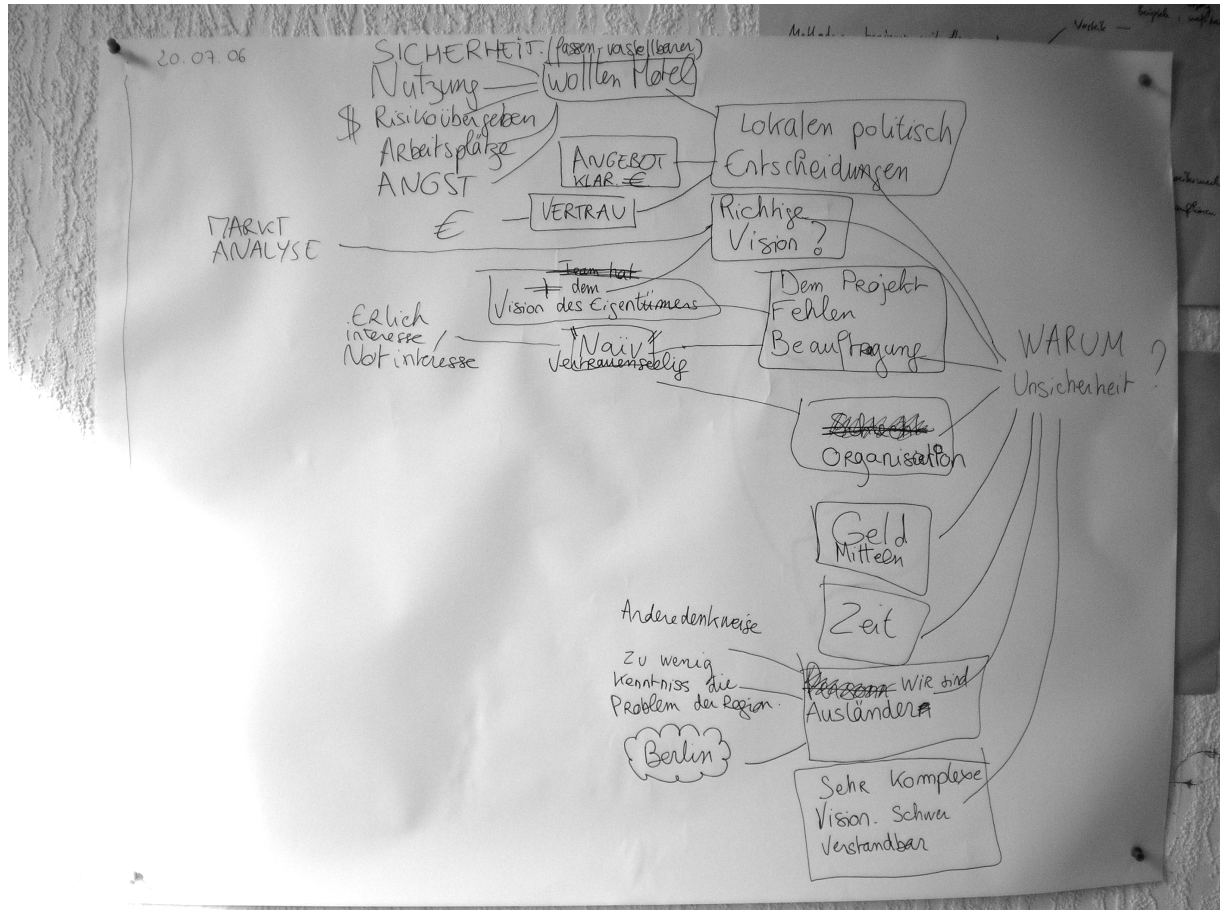 20.07.06
SICHERHEIT. (passen, vorstellbarer)
Nutzung
wollten Motel
$ Risikoübergeben
Arbeitsplätze
ANGST
Lokalen politisch
Entscheidungen
ANGEBOT
KLAR. €
€
VERTRAU
Richtige
Vision?
MARKT
ANALYSE
Team hat
dem
Vision des Eigentümers
Dem Projekt
Fehlen
Beauftragung
Erlich
interesse /
Not interesse
"Naiv"
Vertrauenselig
WARUM
Unsicherheit ?
Organisation
Geld
Mitteln
Zeit
Anderedenkweise
Zu wenig
kenntniss die
Problem der Region.
Berlin
Wir sind
Ausländer
Sehr Komplexe
Vision. Schwer
Verstandbar